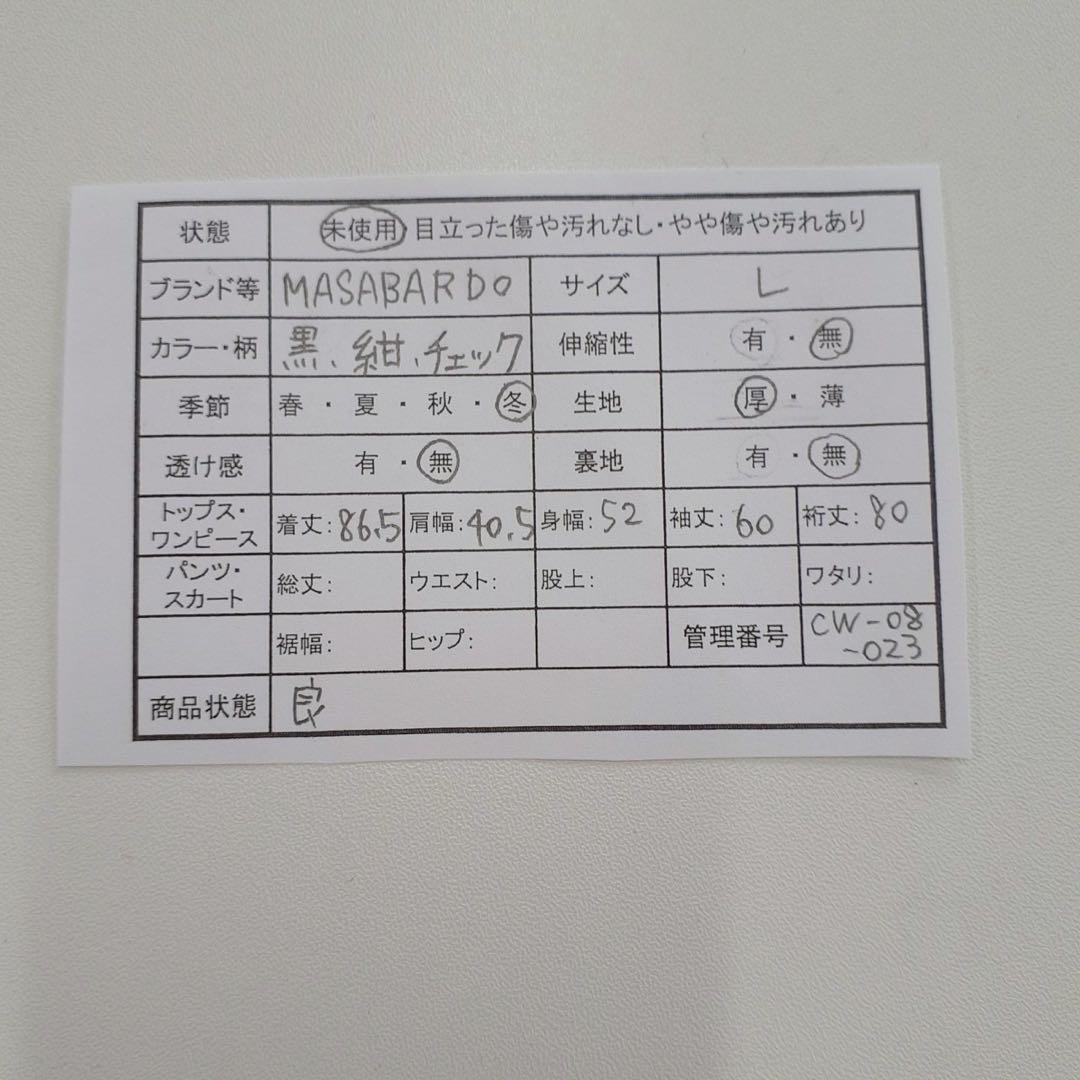 状態 未使用・目立った傷や汚れなし・やや傷や汚れあり
ブランド等 MASABARDO サイズ L
カラー・柄 黒、紺、チェック 伸縮性 有・無
季節 春・夏・秋・冬 生地 厚・薄
透け感 有・無 裏地 有・無
トップス・ワンピース 着丈:86.5 肩幅:40.5 身幅:52 袖丈:60 裄丈:80
パンツ・スカート 総丈: ウエスト: 股上: 股下: ワタリ:
裾幅: ヒップ: 管理番号 CW-08-023
商品状態 良